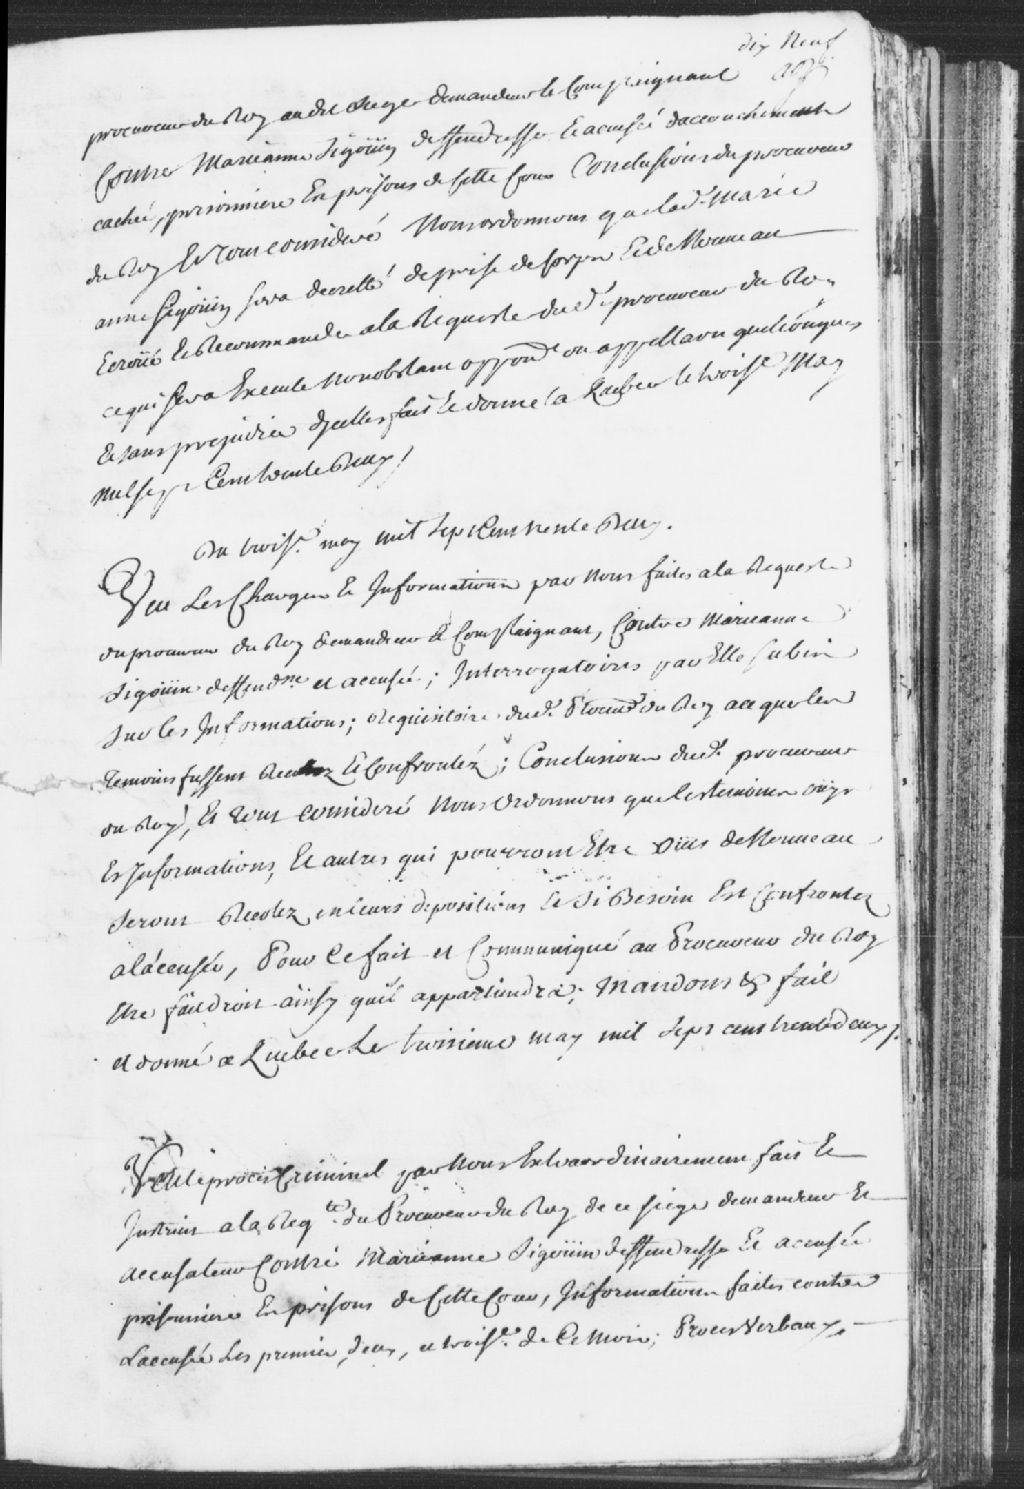 dix Neuf
procureur du Roy audit siege demandeur et Complaignant
Contre Marieanne Sigoüin deffendresse et accusée daccouchement
caché, prisonniere Es prisons de Cette Cour Conclusions du procureur
du Roy Et Tout consideré Nous ordonnons que lad. Marie
anne Sigoüin sera decretté de prise de Corps Et de Nouveau
Ecroüé et Recommandée a la Requeste dud. procureur du Roy
ce qui sera Executé Nonobstant oppon.s ou appellaon quelconques
Et sans prejudice dycelles fait et donné a Quebec le trois.e May
mil sept Cent trente Deux /
Du trois.e may mil sept Cent trente Deux.
Veu Les Charges et Informations par Nous faites a la Requeste
du procureur du Roy demandeur et Complaignant, Contre Marieanne
Sigoüin deffend.re et accusée; Interrogatoires par Elle subis
sur les Informations; Requisitoire dud. Procur.r du Roy a ce que les
temoins fussent Recollez et Confrontéz; Conclusions dud. procureur
du Roy, Et Tout consideré Nous Ordonnons que les temoins oüys
Es Informations, Et autres qui pourront Etre oüis de Nouveau
seront Recolez en leurs depositions et si Besoin Est Confrontez
a laccusée, Pour Ce fait et Communiqué au Procureur du Roy
Etre fait droit ainsy quil appartiendra; Mandons & fait
et donné a Quebec Le troisieme may mil sept cens trente deux /.
Veu le procés Criminel par Nous Extraordinairement fait Et
Instruit a la Req.te du Procureur du Roy de ce siege demandeur Et
accusateur Contre Marieanne Sigoüin deffendresse Et accusée
prisonniere Es prisons de Cette Cour, Informations faites contre
Laccusée Les premier, deux, et trois.e de Ce Mois; Procés Verbaux,